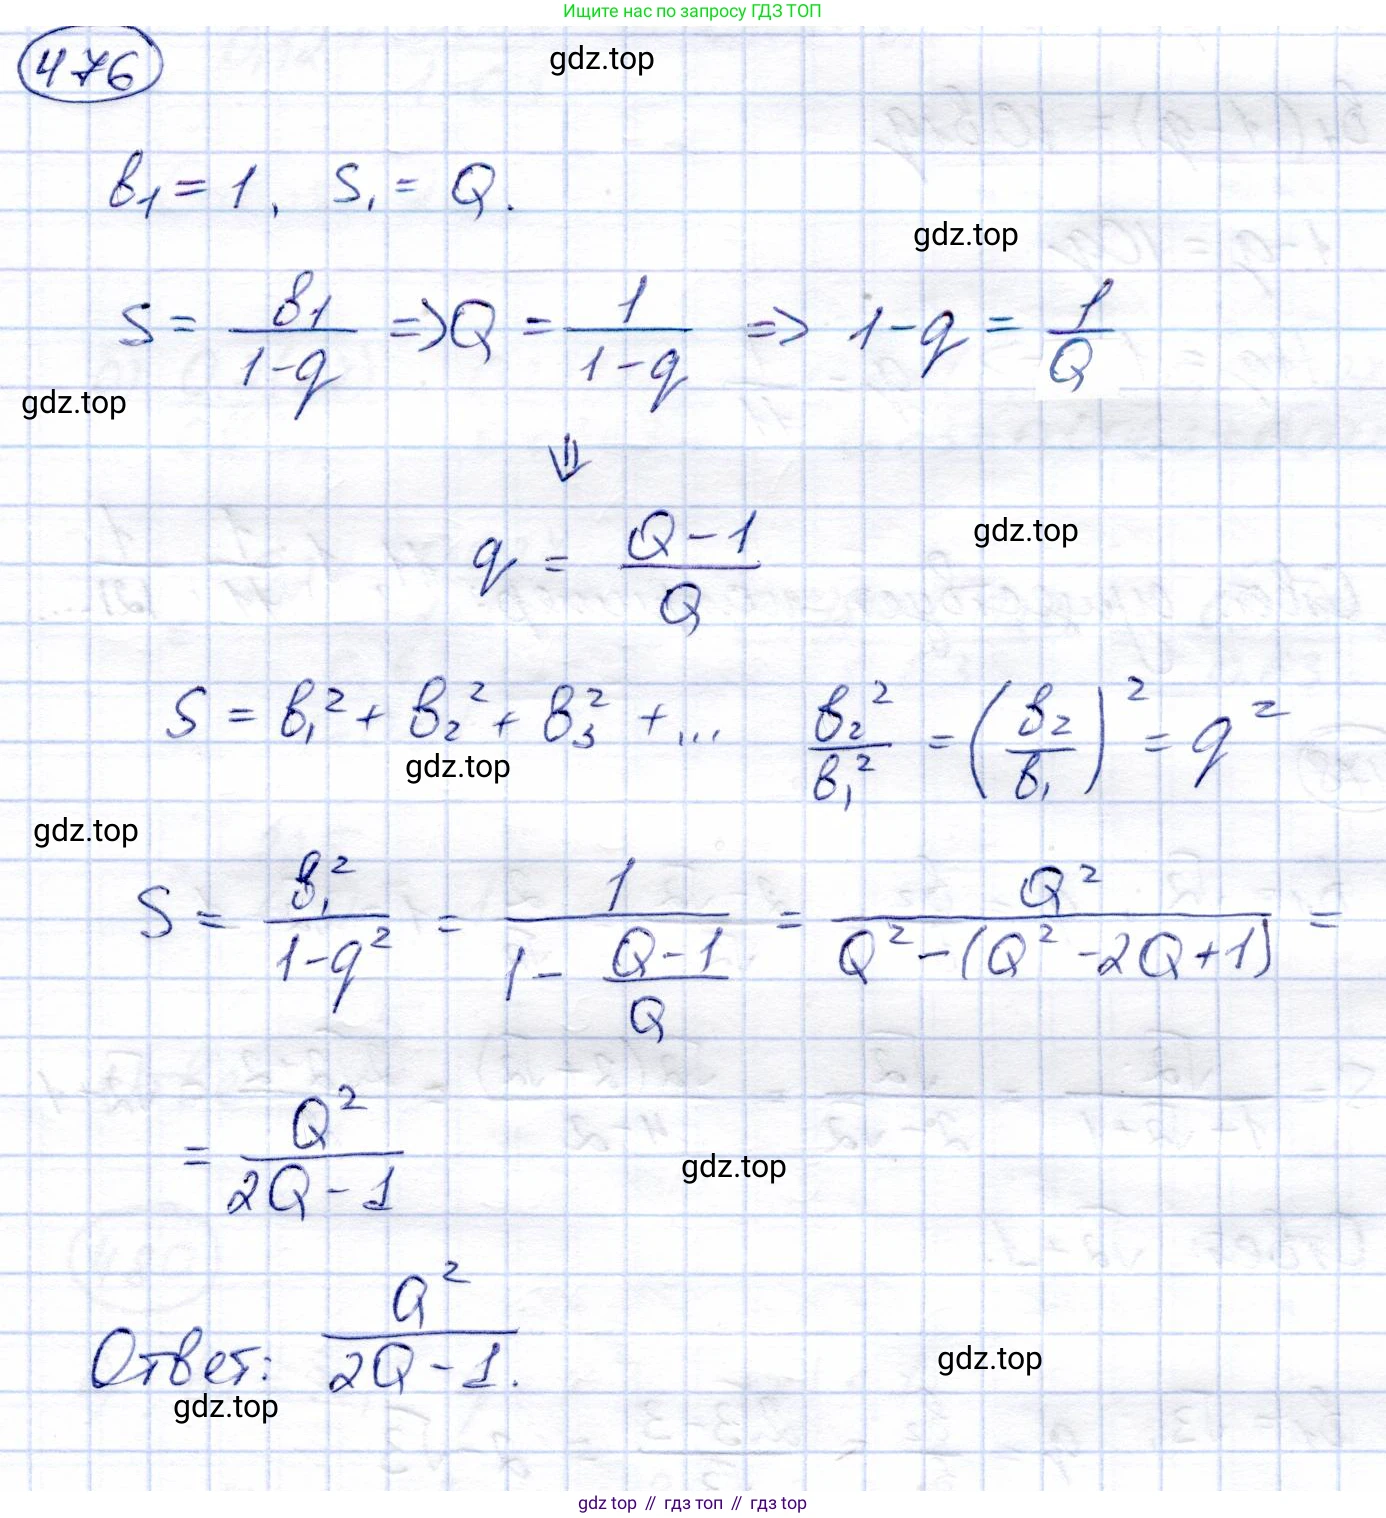 Ищите нас по запросу ГДЗ ТОП
476
gdz.top
b₁ = 1, S₁ = Q.
gdz.top
S = b₁/(1-q) => Q = 1/(1-q) => 1-q = 1/Q
gdz.top
⇓
q = (Q-1)/Q
gdz.top
S = b₁² + b₂² + b₃² + ... b₂²/b₁² = (b₂/b₁)² = q²
gdz.top
gdz.top
S = b₁²/(1-q²) = 1/(1 - (Q-1)/Q) = Q²/(Q² - (Q² - 2Q + 1)) =
= Q²/(2Q - 1)
gdz.top
Ответ: Q²/(2Q - 1).
gdz.top
gdz.top
gdz top // гдз топ // gdz top